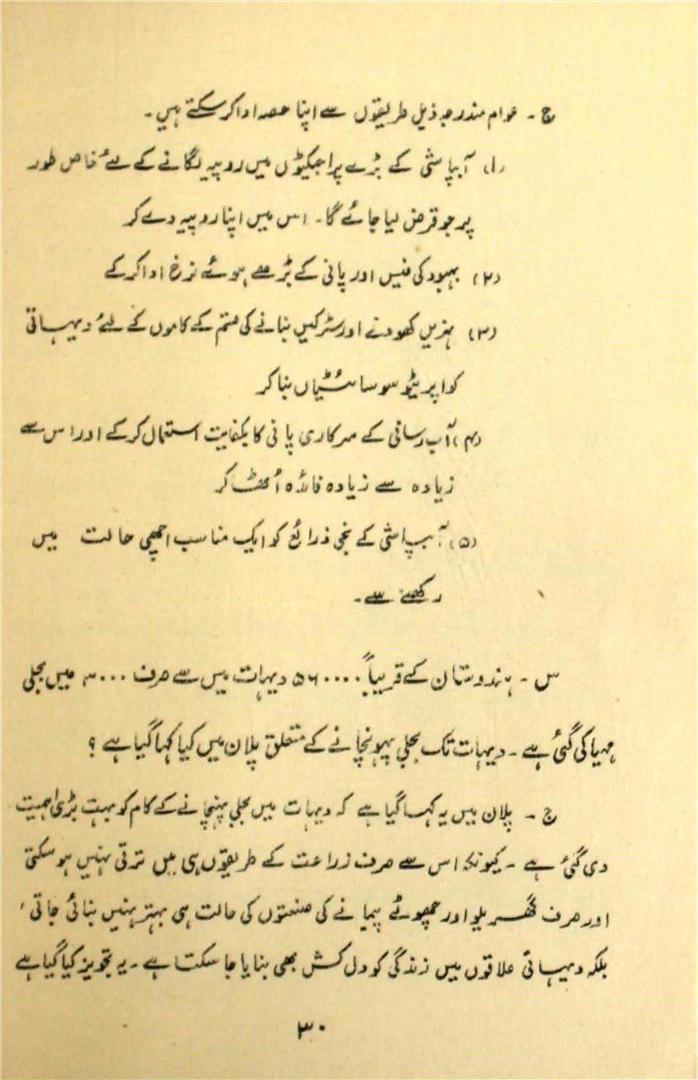 ج - عوام مندرجہ ذیل طریقوں سے اپنا حصہ ادا کر سکتے ہیں۔
(۱) آبپاشی کے بڑے پراجیکٹوں میں روپیہ لگانے کے لئے خاص طور
پر جو قرض لیا جائے گا۔ اس میں اپنا روپیہ دے کر
(۲) بہبود کی فیس اور پانی کے بڑھے ہوئے نرخ ادا کر کے
(۳) نہریں کھودنے اور سڑکیں بنانے کی قسم کے کاموں کے لئے دیہاتی
کواپریٹو سوسائٹیاں بنا کر
(۴) آب رسانی کے سرکاری پانی کا بکفایت استعمال کر کے اور اس سے
زیادہ سے زیادہ فائدہ اُٹھا کر
(۵) آبپاشی کے نجی ذرائع کو ایک مناسب اچھی حالت میں
رکھنے سے۔
س - ہندوستان کے قریباً ۵۶۰۰۰۰ دیہات میں سے صرف ۳۰۰۰ میں بجلی
مہیا کی گئی ہے۔ دیہات تک بجلی پہونچانے کے متعلق پلان میں کیا کہا گیا ہے ؟
ج - پلان میں یہ کہا گیا ہے کہ دیہات میں بجلی پہنچانے کے کام کو بہت بڑی اہمیت
دی گئی ہے۔ کیونکہ اس سے صرف زراعت کے طریقوں ہی میں ترقی نہیں ہو سکتی
اور صرف گھریلو اور چھوٹے پیمانے کی صنعتوں کی حالت ہی بہتر نہیں بنائی جاتی،
بلکہ دیہاتی علاقوں میں زندگی کو دل کش بھی بنایا جا سکتا ہے۔ یہ تجویز کیا گیا ہے
۳۰